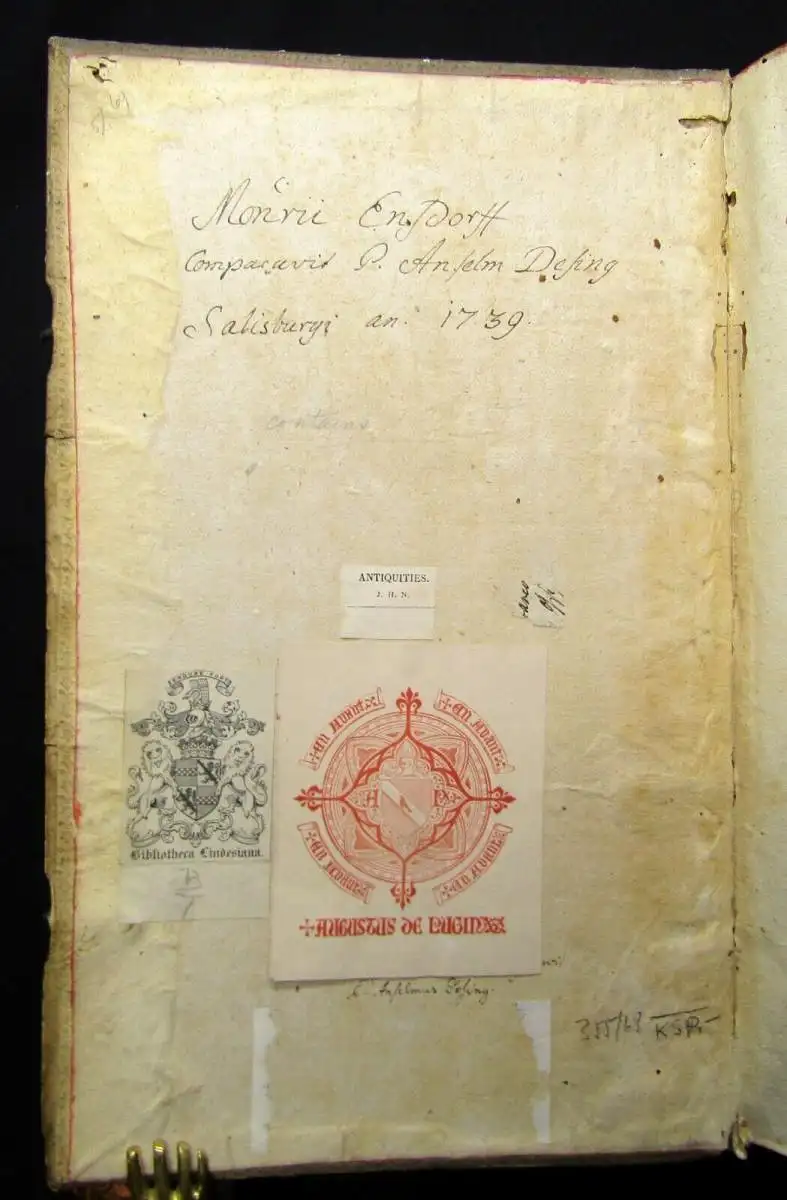 Mon̄rii Ensdorff
Comparavit P. Anselm Desing
Salisburgi an: 1739.
contains
ANTIQUITIES.
J. H. N.
ENDURE FORT
Bibliotheca Lindesiana.
B
+EN AVANT
+EN AVANT
A P
+EN AVANT
+EN AVANT
+AUGUSTUS DE PUGIN
P. Anselmus Desing.
355/63 KSPr